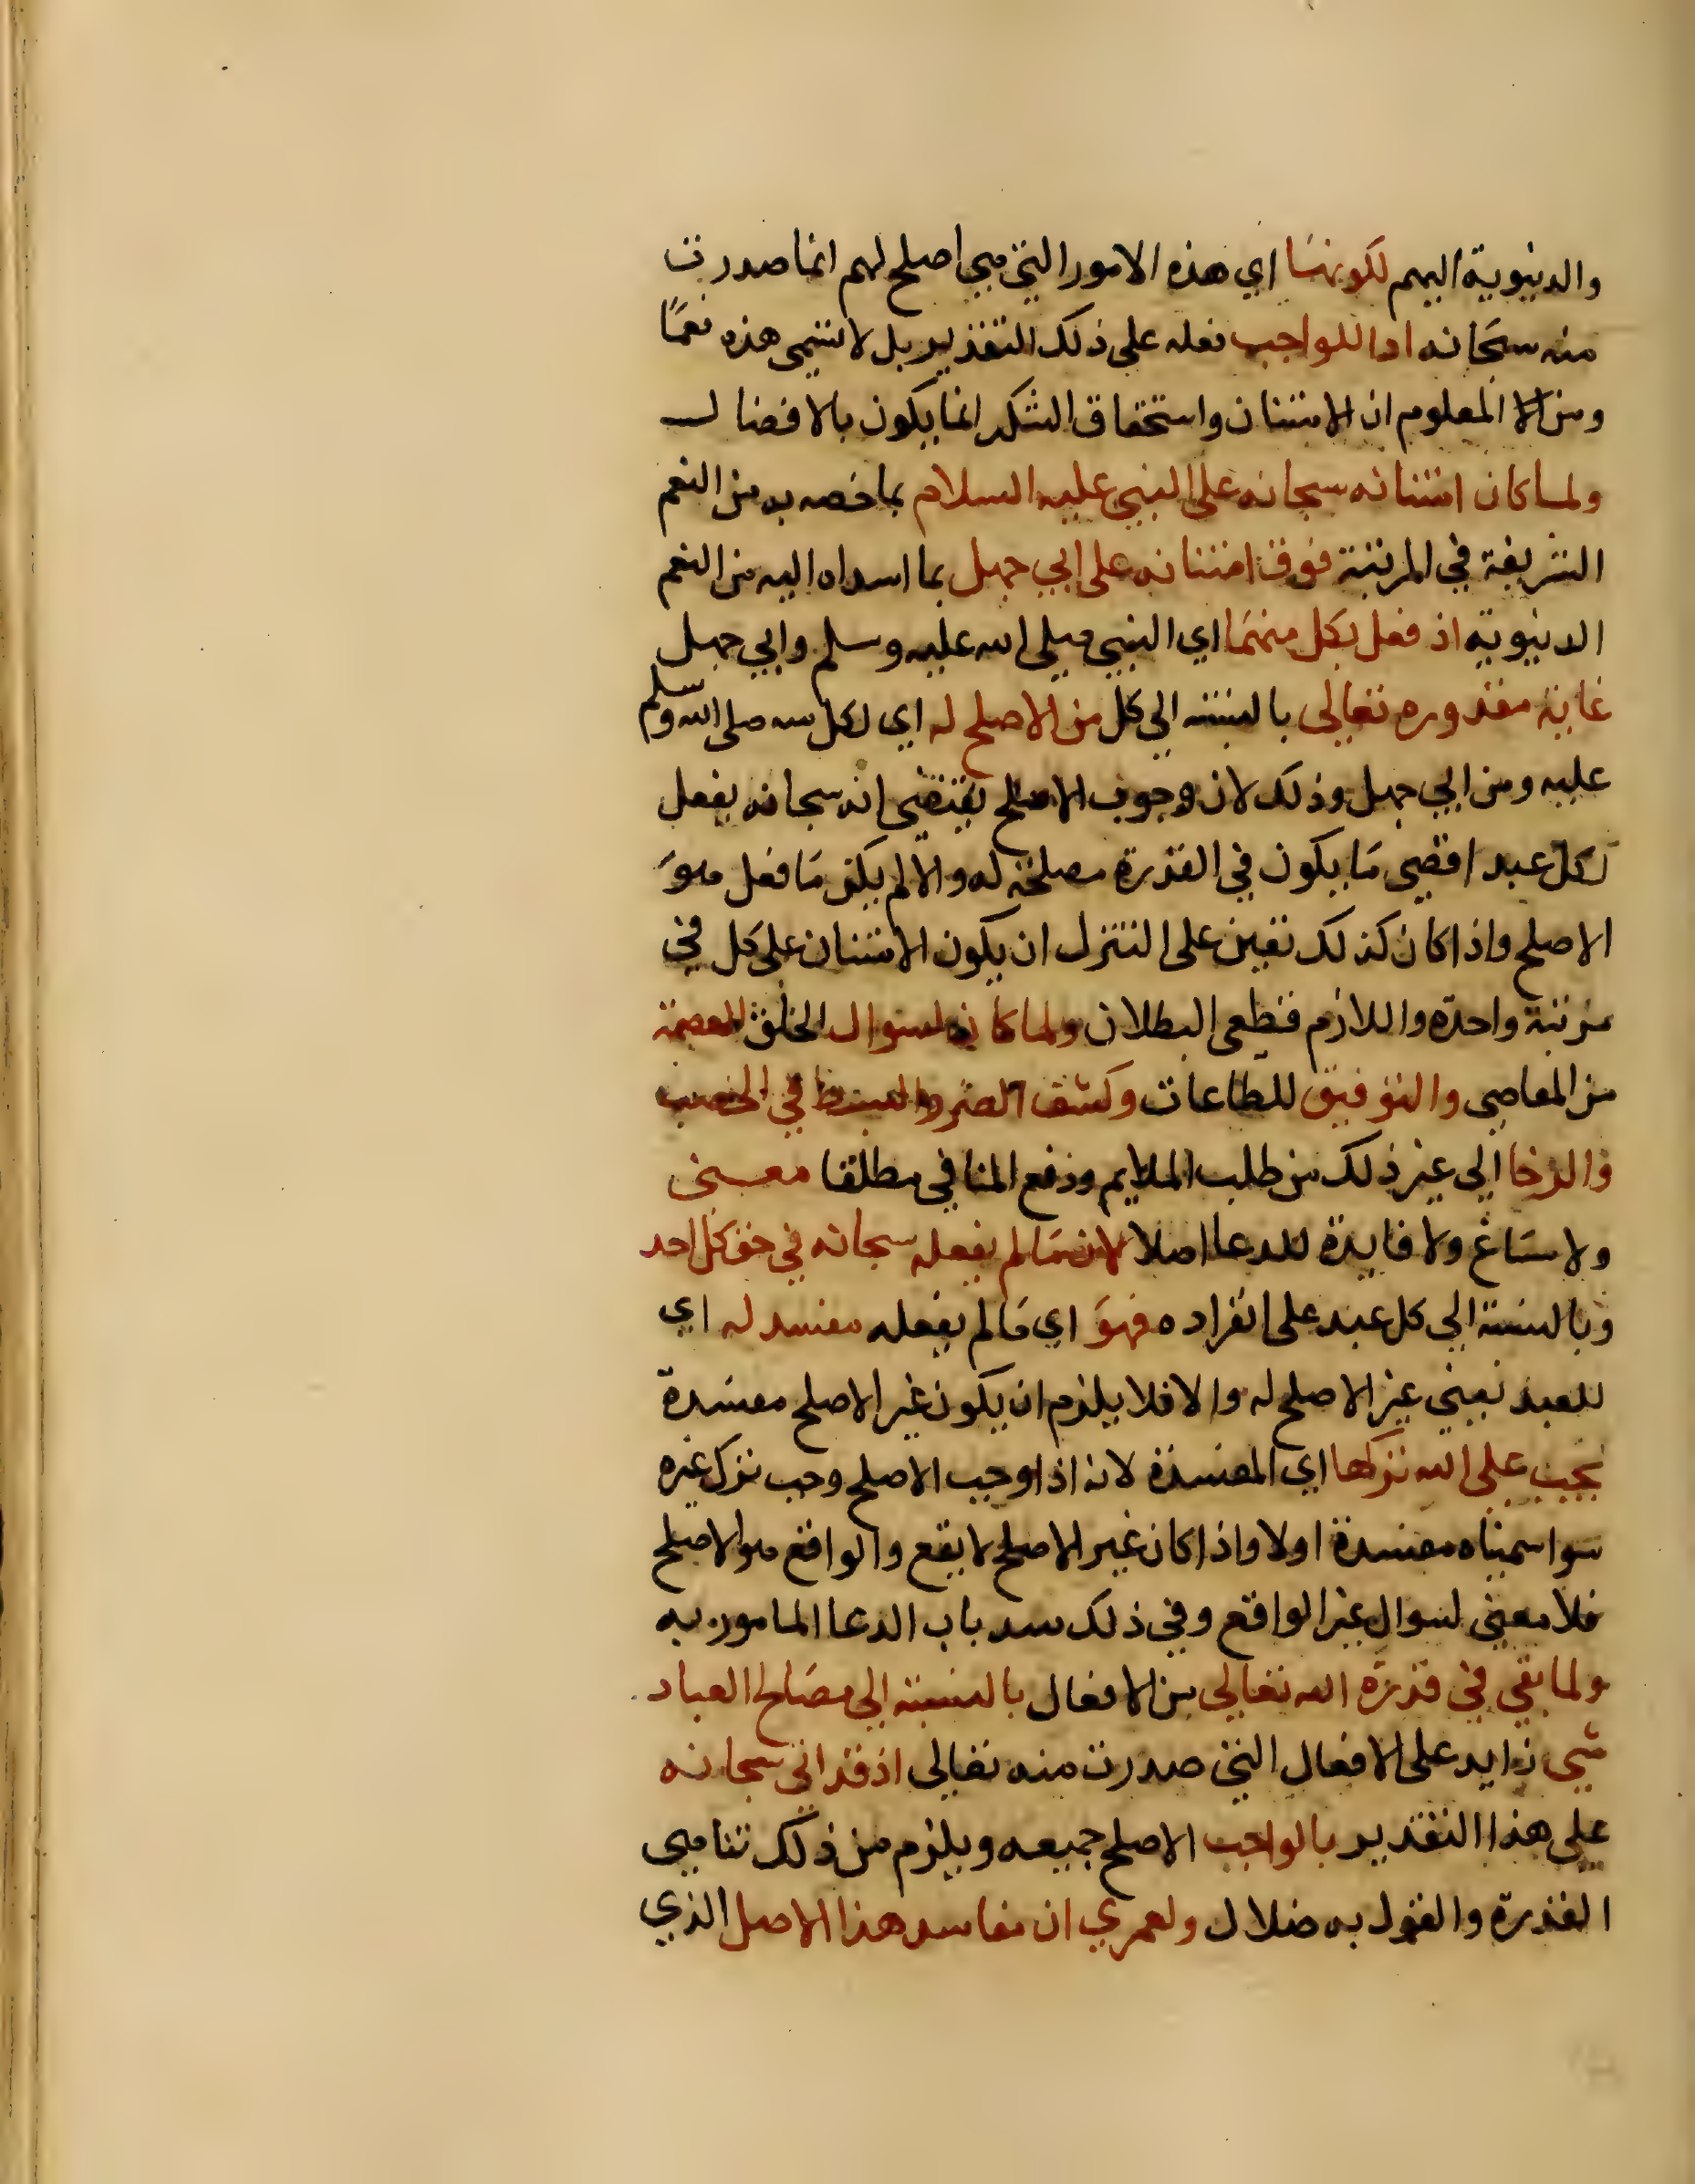 والدنيوية اليهم لكونها اي هذه الامور التي هي اصلح لهم انما صدرت
منه سبحانه ادا للواجب فعله على ذلك التقدير بل لا تسمى هذه نعمًا
ومن المعلوم ان الامتنان واستحقاق الشكر انما يكون بالافضال
ولما كان امتنانه سبحانه على النبي عليه السلام بما خصه به من النعم
الشريفة في المرتبة فوق امتنانه على ابي جهل بما اسداه اليه من النعم
الدنيوية اذ فعل بكل منهما اي النبي صلى الله عليه وسلم وابي جهل
غاية مقدوره تعالى بالنسبة الى كل من الاصلح له اي لكل منه صلى الله وسلم
عليه ومن ابي جهل وذلك لان وجوب الاصلح يقتضي انه سبحانه يفعل
لكل عبد اقصى ما يكون في القدرة مصلحة له والا لم يكن ما فعل هو
الاصلح واذا كان كذلك تعين على التنزل ان يكون الامتنان على كل في
مرتبة واحدة واللازم قطعي البطلان ولما كان لسوال الخلق العصمة
من المعاصي والتوفيق للطاعات وكشف الضر والبسط في الخصب
والرخا الى غير ذلك من طلب الملايم ودفع المنافي مطلقا معنى
ولا مساغ ولا فايدة للدعا اصلا لان ما لم يفعله سبحانه في حق كل احد
وبالنسبة الى كل عبد على انفراده فهو اي ما لم يفعله مفسد له اي
للعبد يعني غير الاصلح له والا فلا يلزم ان يكون غير الاصلح مفسدة
يجب على الله تركها اي المفسدة لانه اذا وجب الاصلح وجب ترك غيره
سوا سميناه مفسدة اولا واذا كان غير الاصلح لا يقع والواقع هو الاصلح
فلا معنى لسوال غير الواقع وفي ذلك سد باب الدعا المامور به
ولما بقي في قدرة الله تعالى من الافعال بالنسبة الى مصالح العباد
شي زايد على الافعال التي صدرت منه تعالى اذ قد اتى سبحانه
على هذا التقدير بالواجب الاصلح جميعه ويلزم من ذلك تناهي
القدرة والقول به ضلال ولعمري ان مفاسد هذا الاصل الذي